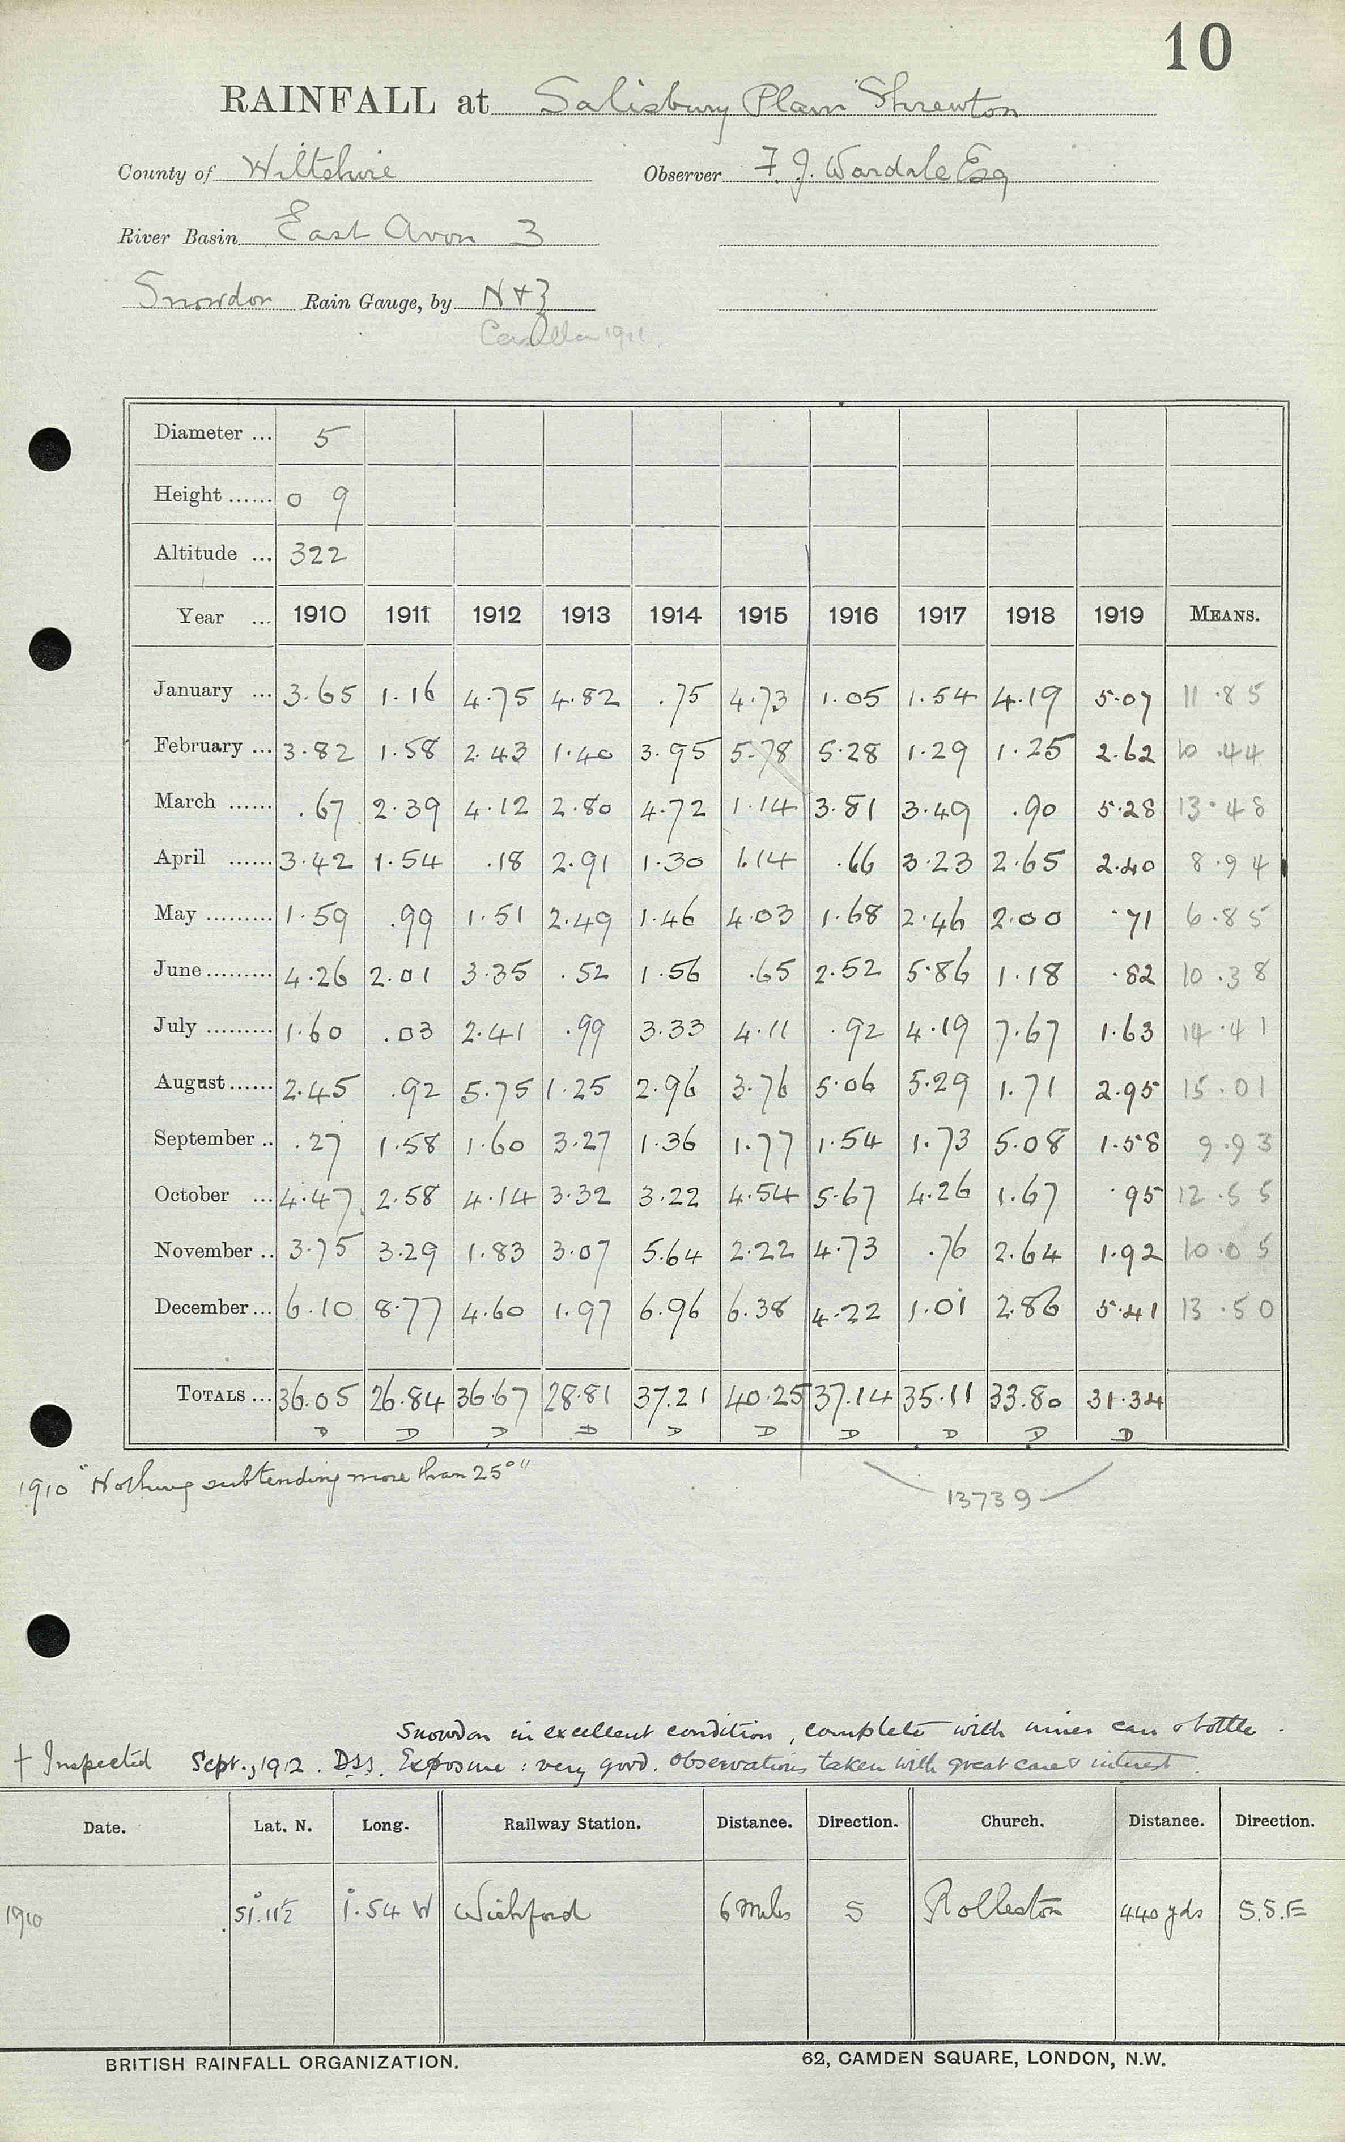 10
RAINFALL at Salisbury Plain Shrewton
County of Wiltshire Observer F. J. Wardale Esq
River Basin East Avon 3
Snowdon Rain Gauge, by N & Z
Casella 1911.
Diameter ... 5
Height ...... 0 9
Altitude ... 322
Year ... 1910 1911 1912 1913 1914 1915 1916 1917 1918 1919 MEANS.
January ... 3.65 1.16 4.75 4.82 .75 4.73 1.05 1.54 4.19 5.07 11.85
February ... 3.82 1.58 2.43 1.40 3.95 5.78 5.28 1.29 1.25 2.62 10.44
March ...... .67 2.39 4.12 2.80 4.72 1.14 3.81 3.49 .90 5.28 13.48
April ...... 3.42 1.54 .18 2.91 1.30 1.14 .66 3.23 2.65 2.40 8.94
May ......... 1.59 .99 1.51 2.49 1.46 4.03 1.68 2.46 2.00 .71 6.85
June ......... 4.26 2.01 3.35 .52 1.56 .65 2.52 5.86 1.18 .82 10.38
July ......... 1.60 .03 2.41 .99 3.33 4.11 .92 4.19 7.67 1.63 14.41
August ...... 2.45 .92 5.75 1.25 2.96 3.76 5.06 5.29 1.71 2.95 15.01
September .. .27 1.58 1.60 3.27 1.36 1.77 1.54 1.73 5.08 1.58 9.93
October ... 4.47 2.58 4.14 3.32 3.22 4.54 5.67 4.26 1.67 .95 12.55
November .. 3.75 3.29 1.83 3.07 5.64 2.22 4.73 .76 2.64 1.92 10.05
December ... 6.10 8.77 4.60 1.97 6.96 6.38 4.22 1.01 2.86 5.41 13.50
TOTALS ... 36.05 26.84 36.67 28.81 37.21 40.25 37.14 35.11 33.80 31.34
D D D D D D D D D D
1910 "Nothing subtending more than 25°"
13739
Snowdon in excellent condition, complete with inner can & bottle.
+ Inspected Sept., 1912. Exposure: very good. Observations taken with great care & interest.
Date. Lat. N. Long. Railway Station. Distance. Direction. Church. Distance. Direction.
1910 51°.11½ 1°.54 W Wishford 6 miles S Rolleston 440 yds S.S.E
BRITISH RAINFALL ORGANIZATION. 62, CAMDEN SQUARE, LONDON, N.W.